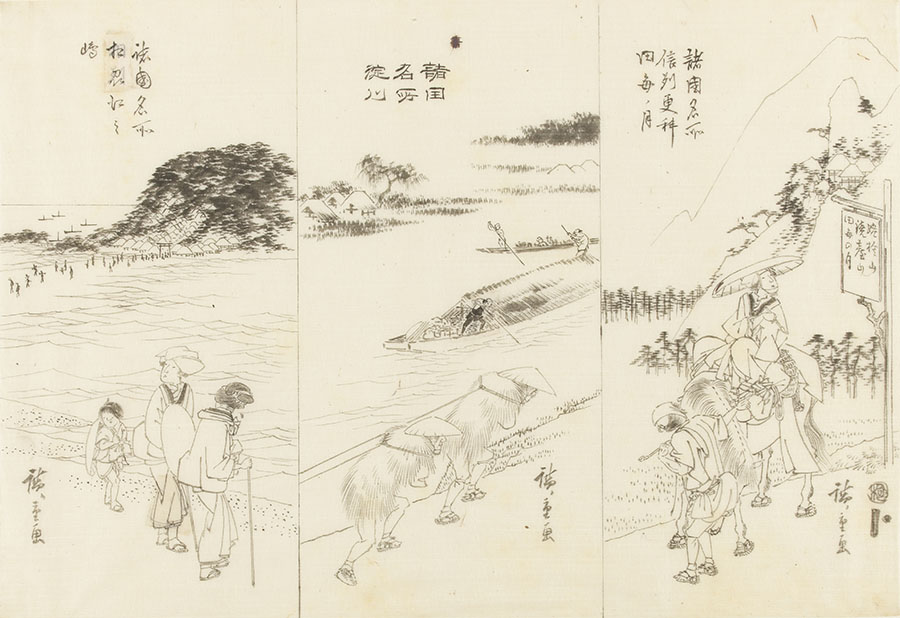 諸國名所
信州更科
田毎ノ月
姨捨山
鏡臺山
田毎の月
廣重画
諸国
名所
淀川
廣重画
諸國名所
相州江之
嶋
廣重画